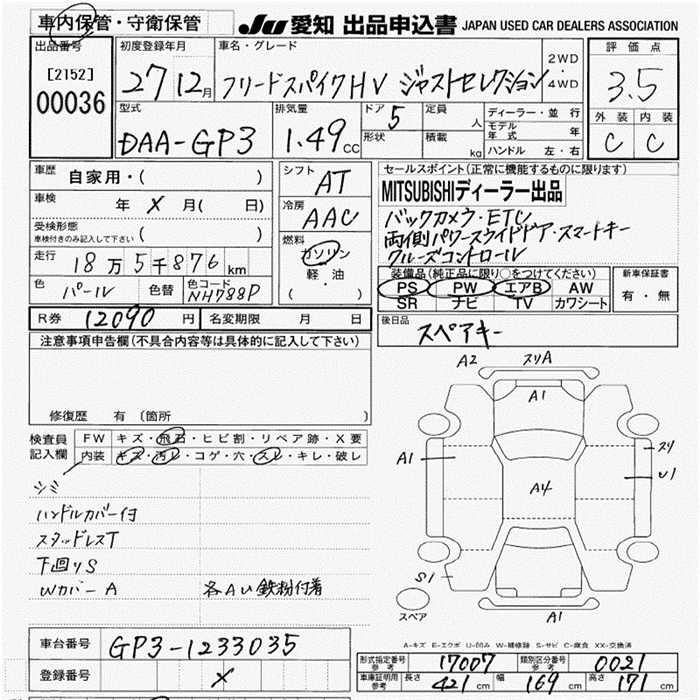 車内保管・守衛保管
JU 愛知 出品申込書 JAPAN USED CAR DEALERS ASSOCIATION
出品番号
[2152]
00036
初度登録年月
27 12月
車名・グレード
フリードスパイクHV ジャストセレクション
2WD
・
4WD
評価点
3.5
型式
DAA-GP3
排気量
1.49 CC
ドア 5
形状
定員 人
積載 kg
ディーラー・並行
モデル年式 年
ハンドル 左・右
外装 内装
C C
車歴 自家用・( )
車検 年 X 月( 日)
受検形態
車検付きのみ記入して下さい ( )
走行 18万5千876 km
色 パール 色替 色コード NH788P
シフト AT
冷房 AAC
燃料
ガソリン
軽・油
( )
セールスポイント(正常に機能するものに限ります)
MITSUBISHIディーラー出品
バックカメラ・ETC
両側パワースライドドア・スマートキー
クルーズコントロール
装備品(純正品に限り○をつけてください)
PS PW エアB AW
SR ナビ TV カワシート
新車保証書
有・無
R券 12090 円 名変期限 月 日
後日品
スペアキー
注意事項申告欄(不具合内容等は具体的に記入して下さい)
修復歴 有(箇所 )
検査員記入欄
FW キズ・飛石・ヒビ割・リペア跡・X要
内装 キズ・汚レ・コゲ・穴・スレ・キレ・破レ
シミ
ハンドルカバー付
スタッドレスT
下回りS
Wカバー A 各AU鉄粉付着
A2 スリA
A1
A1
A4
スリ
U1
S1
スペア
A1
A-キズ E-エクボ U-凹み W-補修跡 S-サビ C-腐食 XX-交換済
車台番号 GP3-1233035
登録番号 X
形式指定番号参考 17007 類別区分番号参考 0021
車庫証明用参考 長さ 421 cm 幅 169 cm 高さ 171 cm